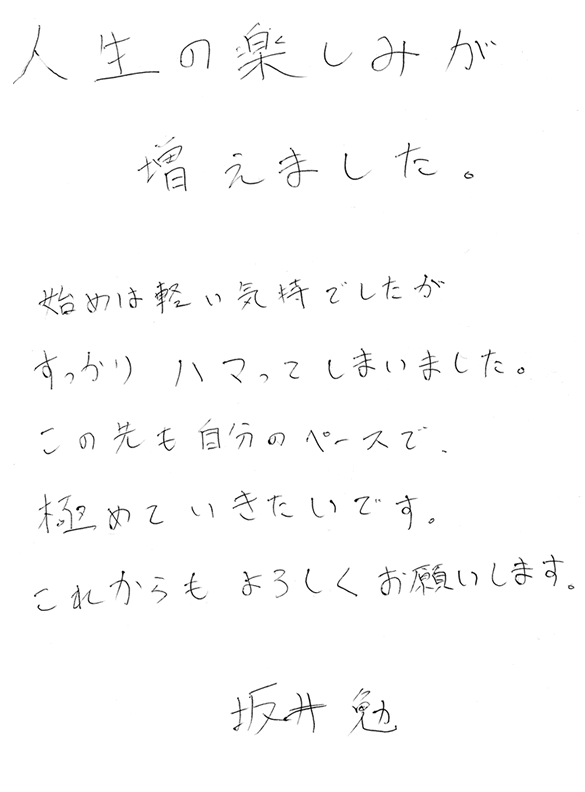 人生の楽しみが
増えました。
始めは軽い気持でしたが
すっかりハマってしまいました。
この先も自分のペースで、
極めていきたいです。
これからもよろしくお願いします。
坂井勉